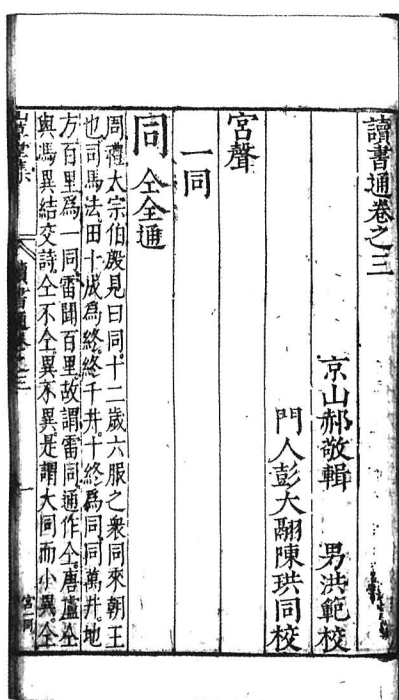 讀書通卷之三
京山郝敬輯　男洪範校
門人彭大翮陳珙同校
宮聲
一同
同　仝全通
周禮大宗伯殷見曰同十二歲六服之衆同來朝王
也司馬法田十成爲終終千井十終爲同同萬井地
方百里爲一同雷聞百里故謂雷同通作仝唐盧仝
與馮異結交詩仝不仝異不異是謂大同而小異仝
讀書通卷之三
一
宮一同